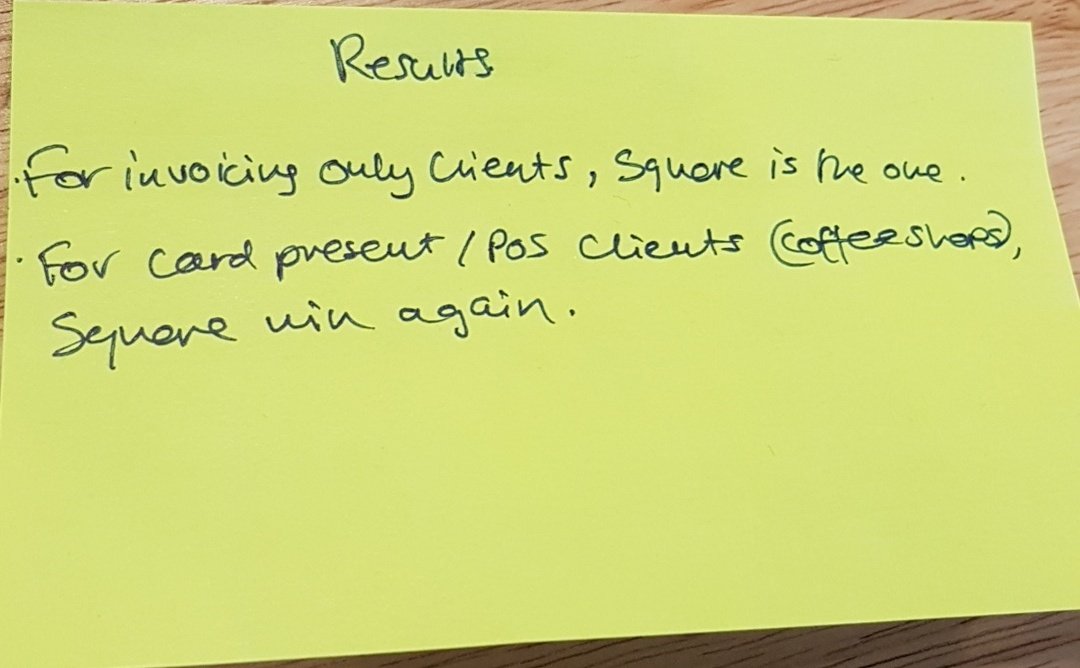 Results
· For invoicing only clients, Square is the one.
· For card present / POS clients (coffeeshops),
Square win again.